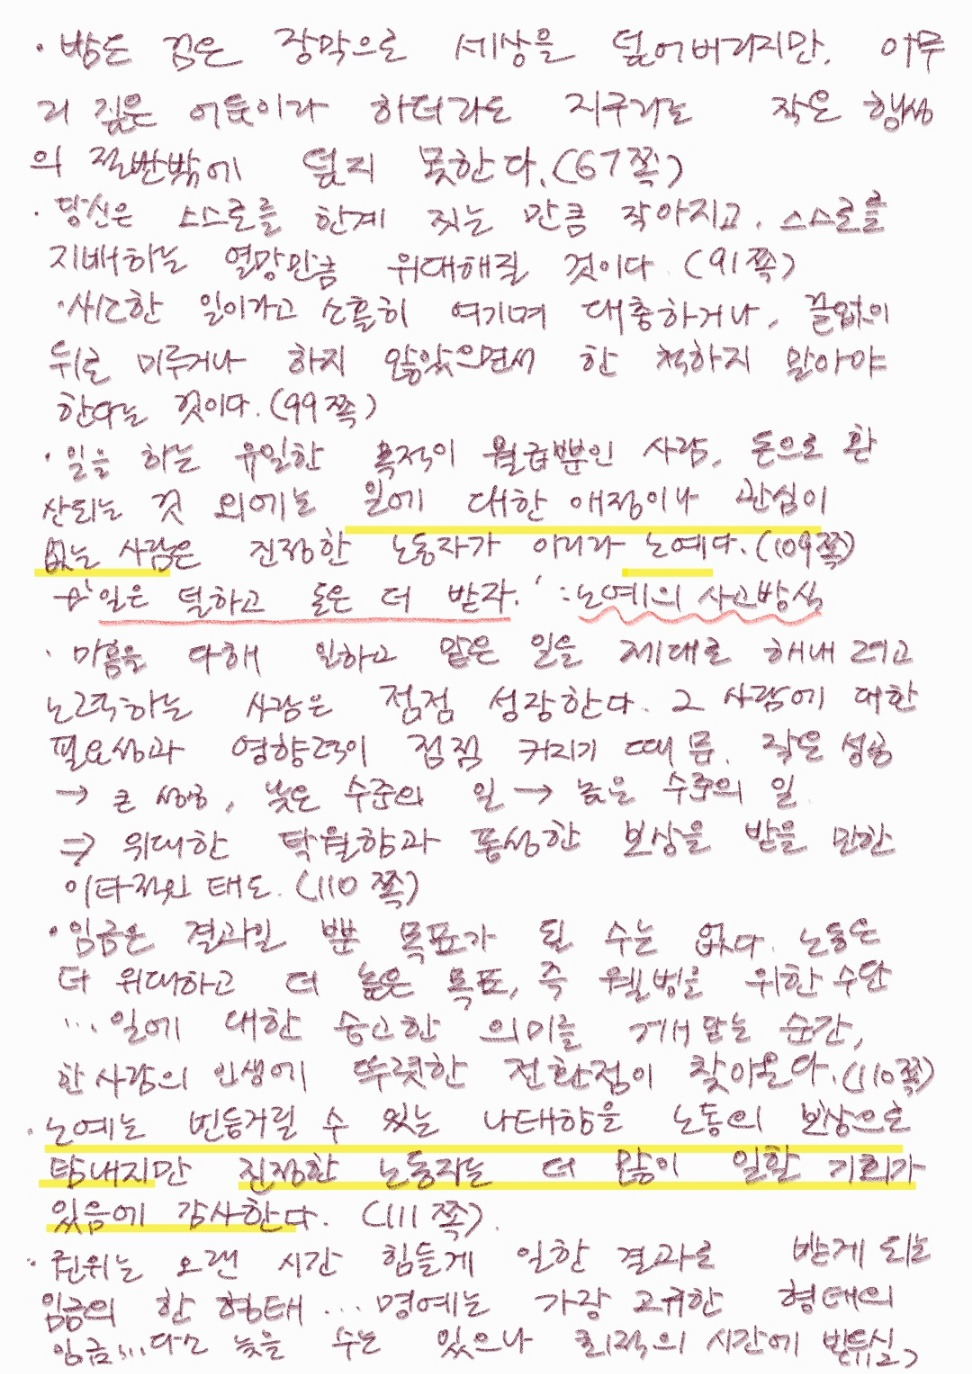 · 밤은 검은 장막으로 세상을 덮어버리지만, 아무
리 짙은 어둠이라 하더라도 지구라는 작은 행성
의 절반밖에 덮지 못한다.(67쪽)
· 당신은 스스로를 한계 짓는 만큼 작아지고, 스스로를
지배하는 열망만큼 위대해질 것이다. (91쪽)
· 사소한 일이라고 소홀히 여기며 대충하거나, 끝없이
뒤로 미루거나 하지 않았으면서 한 척하지 말아야
한다는 것이다.(99쪽)
· 일을 하는 유일한 목적이 월급뿐인 사람, 돈으로 환
산되는 것 외에는 일에 대한 애정이나 관심이
없는 사람은 진정한 노동자가 아니라 노예다.(109쪽)
→ '일은 덜하고 돈은 더 받자.' : 노예의 사고방식
· 마음을 다해 일하고 맡은 일을 제대로 해내려고
노력하는 사람은 점점 성장한다. 그 사람에 대한
필요성과 영향력이 점점 커지기 때문. 작은 성공
→ 큰 성공, 낮은 수준의 일 → 높은 수준의 일.
⇒ 위대한 탁월함과 풍성한 보상을 받을 만한
이타적인 태도. (110쪽)
· 임금은 결과일 뿐 목표가 될 수는 없다. 노동은
더 위대하고 더 높은 목표, 즉 웰빙을 위한 수단
… 일에 대한 숭고한 의미를 깨닫는 순간,
한 사람의 인생에 뚜렷한 전환점이 찾아온다.(110쪽)
· 노예는 빈둥거릴 수 있는 나태함을 노동의 보상으로
탐내지만 진정한 노동자는 더 많이 일할 기회가
있음에 감사한다. (111쪽).
· 권위는 오랜 시간 힘들게 일한 결과로 받게 되는
임금의 한 형태 … 명예는 가장 고귀한 형태의
임금 … 다소 늦을 수는 있으나 최적의 시간에 반드시,